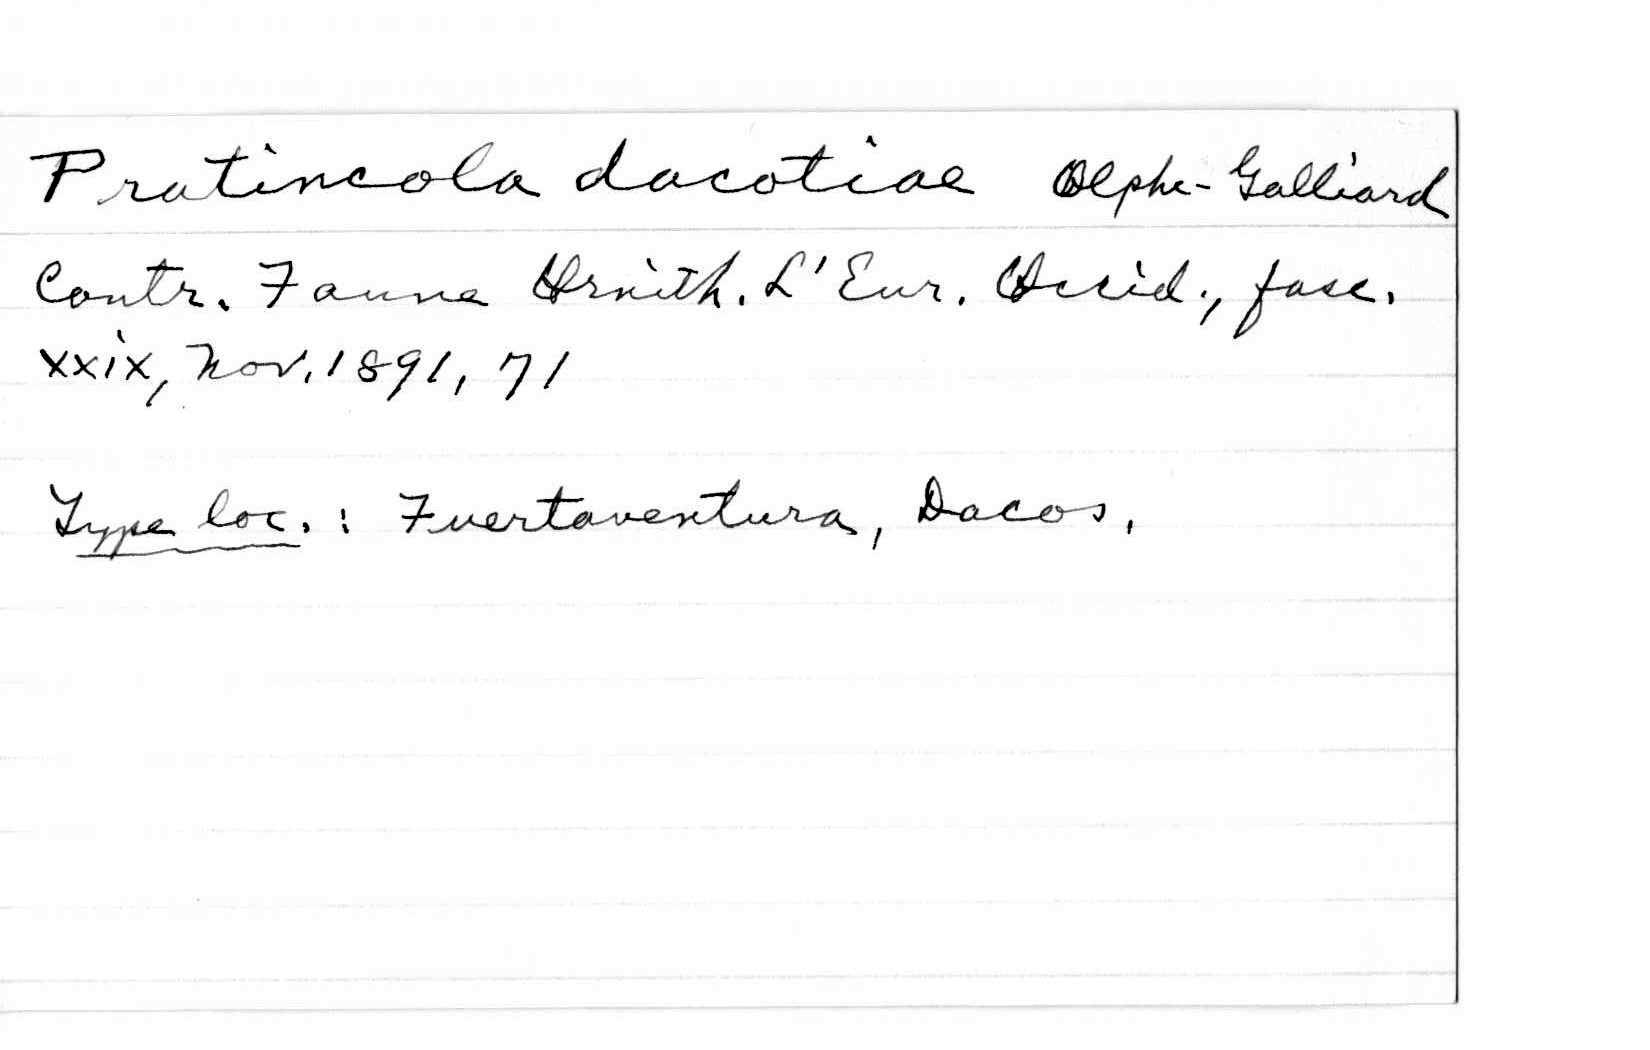 Pratincola dacotiae Olphe-Galliard
Contr. Faune Ornith. L'Eur. Occid., fasc.
xxix, Nov. 1891, 71
Type loc. : Fuertaventura, Dacos.